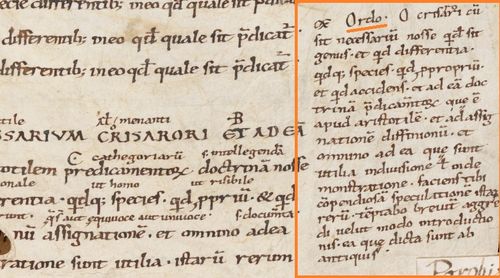 differentib; in eo qd quale sit p̄dicat̄
differentib; in eo qd quale sit p̄dicat̄
differentib; in eo qd quale sit p̄dicat̄
menanti B
SSARIVM CRISARORI ET AD EĀ
C cathegoriarū s. intellegenda
otilem predicamentorꝫ doctrinā nosse
ut homo ut risibile
rentia · qdq; species · qd ꝓpriū · & qd
nū assignationē · et omnino ad ea
ratione sunt utilia · istarū rerum
ex Ordo. O crisarori cū
sit necessariū nosse qd sit
genus · et qd differentia ·
qdq; species · qd ꝓpriū ·
et qd accidens · et ad eā doc
trinā p̄dicamtorꝫ que ē
apud aristotile · et ad assig
nationē diffinionū · et
omnino ad ea que sunt
utilia in diuisione ł in de
monstratione · faciens tibi
cōpendiosā speculationē istarū
rerū · tēptabo breuit̄ aggre
di uelut modo introductio
nis · ea que dicta sunt ab
antiquis ·
Porphi